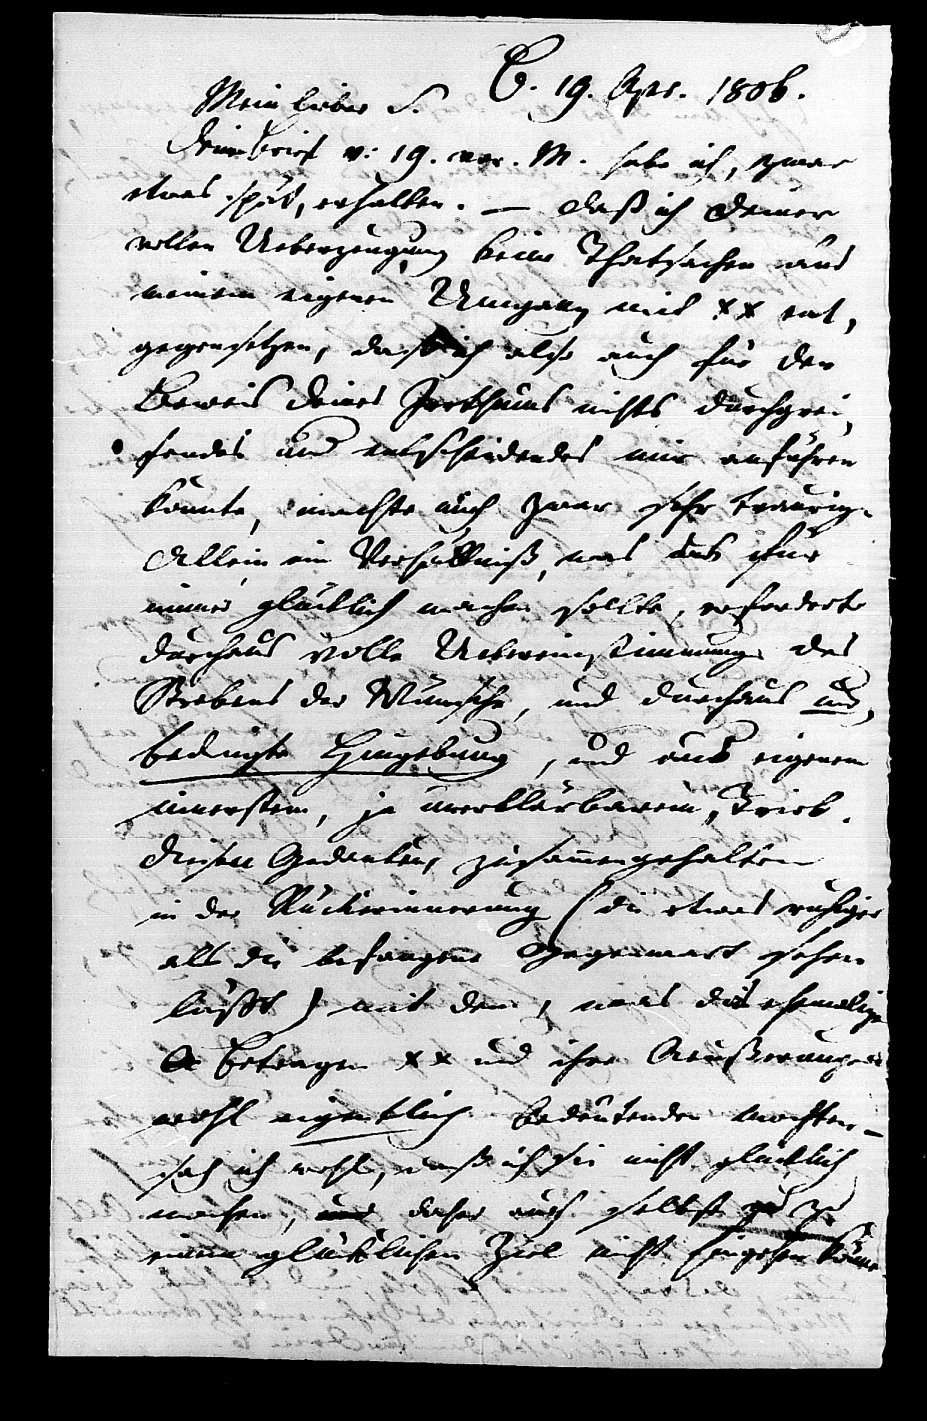 C. 19. Apr. 1806.
Mein lieber S.
Dein Brief v: 19. vor. M. habe ich, zwar
etwas spät, erhalten. — Daß ich Deiner
vollen Ueberzeugung keine Thatsachen aus
meinem eigenen Umgang mit xx ent,
gegensetzen, daß ich also auch für den
Beweis Deines Irrthums nichts durchgrei,
fendes und entscheidendes mir anführen
konnte, machte mich zwar sehr traurig.
Allein ein Verhältniß, was uns für
immer glücklich machen sollte, erforderte
durchaus volle Uebereinstimmung des
Strebens der Wünsche, und durchaus un,
bedingte Hingebung, und aus eigenem
innersten, ja unerklärbarem, Trieb.
Diesen Gedanken, zusammengehalten
in der Rückerinnerung (die etwas ruhiger
als die befangene Gegenwart sehen
läßt) mit dem, was das ehemalige
Betragen xx und ihre Aeußerungen
wohl eigentlich bedeuten mochten –
sah ich wohl, daß ich sie nicht glücklich
machen, daher auch selbst zu
einem glücklichen Ziel nicht hingehen könne.